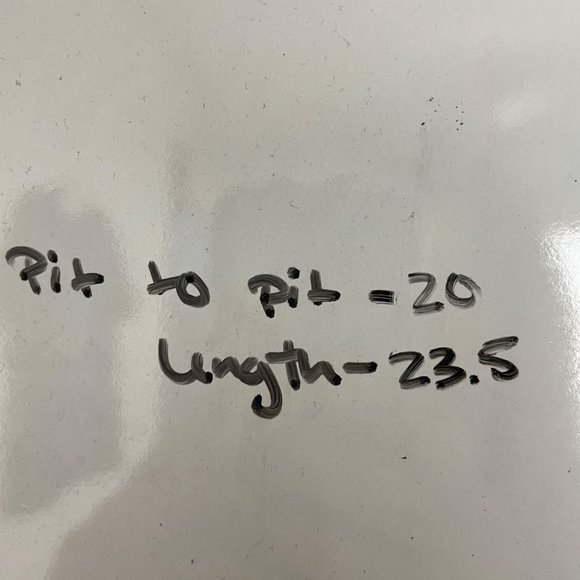 Pit to pit - 20
Length - 23.5